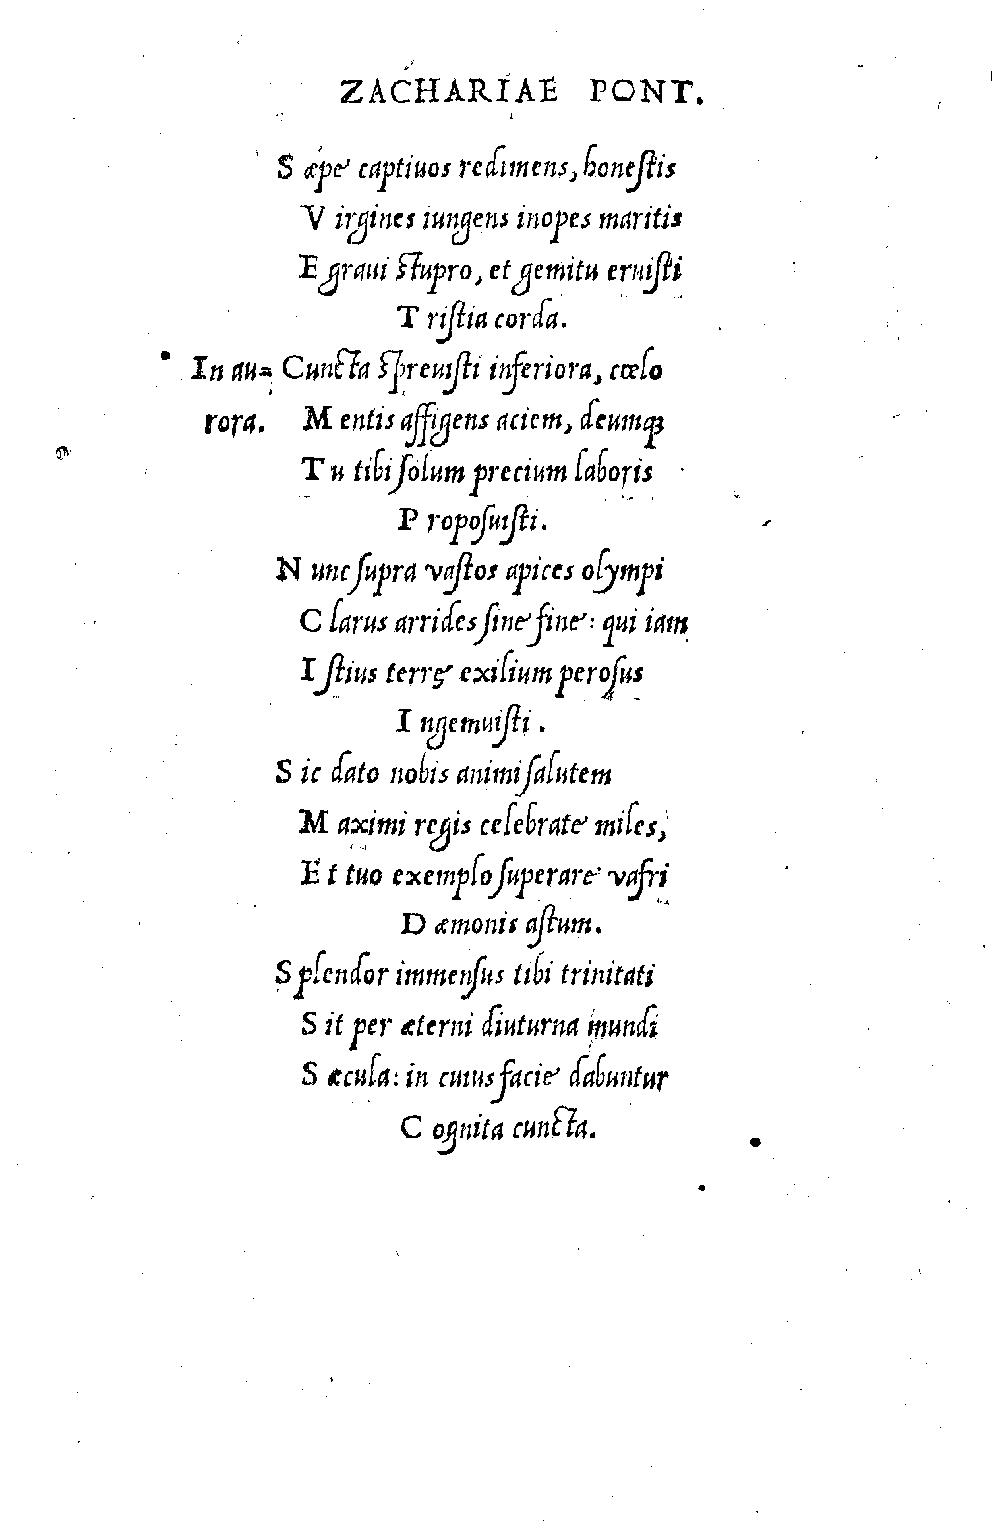 ZACHARIAE PONT.
Sæpe captiuos redimens, honeſtis
Virgines iungens inopes maritis
E graui ſtupro, et gemitu eruiſti
Triſtia corda.
In au= Cuncta ſpreuiſti inferiora, cœlo
rora. Mentis affigens aciem, deumq;
Tu tibi ſolum precium laboris
Propoſuiſti.
Nunc ſupra vaſtos apices olympi
Clarus arrides ſine fine: qui iam
Iſtius terrę exilium peroſus
Ingemuiſti.
Sic dato nobis animi ſalutem
Maximi regis celebrate miles,
Et tuo exemplo ſuperare vafri
Dæmonis aſtum.
Splendor immenſus tibi trinitati
Sit per æterni diuturna mundi
Sæcula: in cuius facie dabuntur
Cognita cuncta.